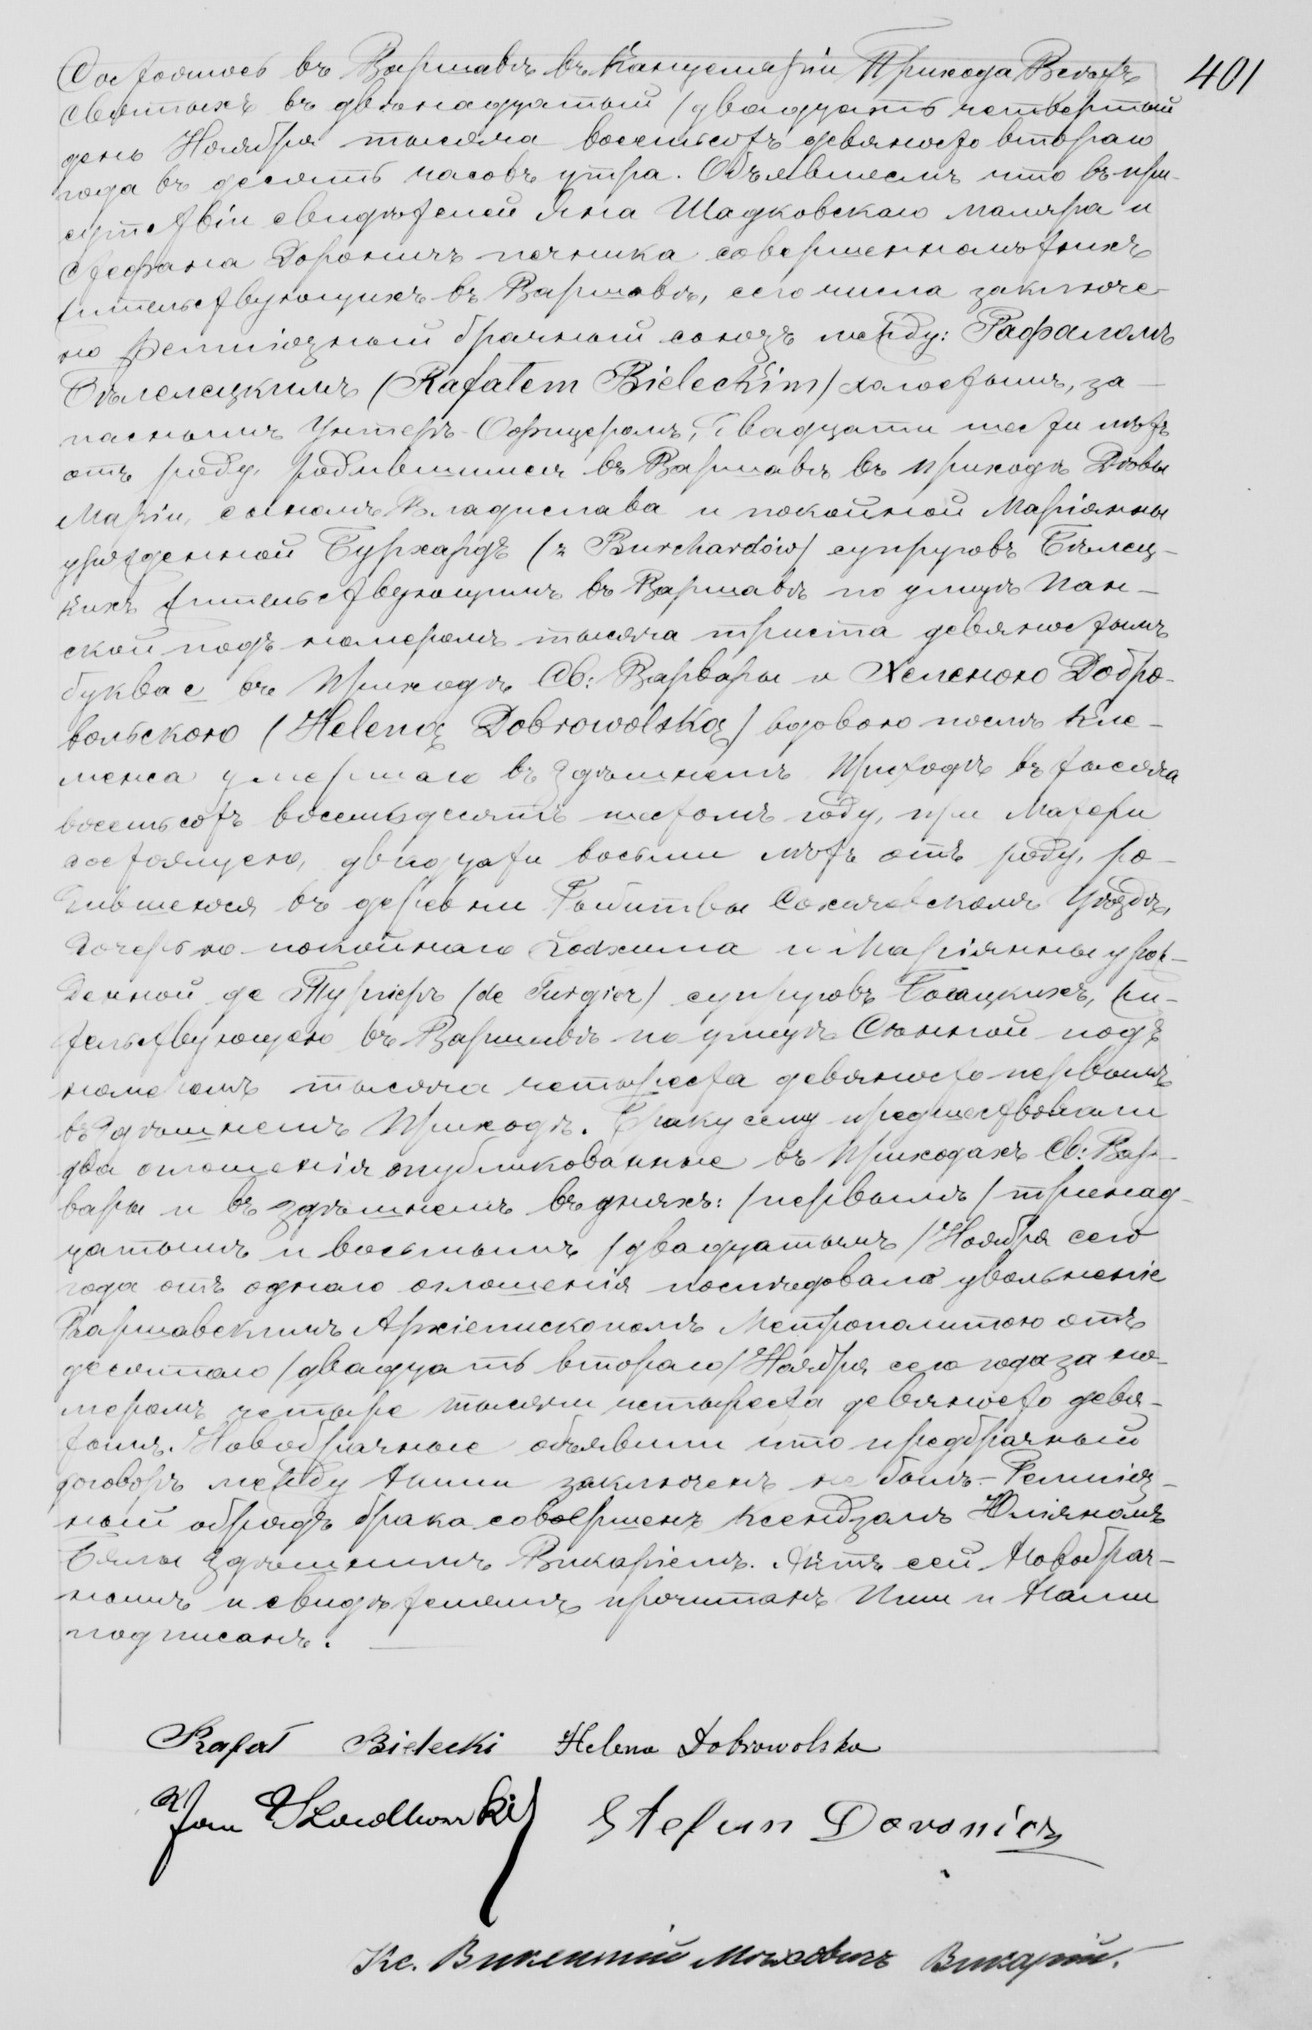 401
Состоялось въ Варшавѣ въ Канцеляріи Прихода Всѣхъ
Святыхъ въ двѣнадцатый /двадцать четвертый
день Ноября тысяча восемьсотъ девяносто втораго
года въ десять часовъ утра. Объявляемъ что въ при-
сутствіи свидѣтелей Яна Шадковскаго маляра и
Стефана Дороничъ печника совершеннолѣтнихъ
жительствующихъ въ Варшавѣ, сего числа заключе-
но Религіозный брачный союзъ между: Рафаломъ
Бѣлелецкимъ (Rafałem Bieleckim) холостымъ, за-
паснымъ Унтеръ-Офицеромъ, двадцати шести лѣтъ
отъ роду, родившимся въ Варшавѣ въ приходѣ Дѣвы
Маріи, сыномъ Владислава и покойной Маріанны
урожденной Бурхардъ (z Burchardów) супруговъ Бѣлец-
кихъ жительствующимъ въ Варшавѣ по улицѣ Пан-
ской подъ номеромъ тысяча триста девяностымъ
буква с въ Приходѣ Св: Варвары и Хеленою Добро-
вольскою (Heleną Dobrowolską) вдовою послѣ Кле-
менса умершаго въ здѣшнемъ Приходѣ въ тысяча
восемьсотъ восемьдесятъ шестомъ году, при Матери
состоящею, двадцати восьми лѣтъ отъ роду, ро-
дившеюся въ деревни Сохачевскомъ Уѣздѣ,
дочерью покойнаго Іоахима и Маріянны урож-
денной де Туржеръ (de Turgier) супруговъ жи-
тельствующею въ Варшавѣ по улицѣ Сѣнной подъ
номеромъ тысяча четыреста девяносто первымъ
въ здѣшнемъ Приходѣ. Браку сему предшествовали
два оглашенія опубликованные въ Приходахъ Св: Вар-
вары и въ здѣшнемъ въ дняхъ: /первымъ/ тринад-
цатымъ и восьмымъ /двадцатымъ/ Ноября сего
года отъ одного оглашенія послѣдовало увольненіе
Варшавскимъ Архіепископомъ Метрополитою отъ
десятаго /двадцать втораго/ Ноября сего года за но-
меромъ четыре тысячи четыреста девяносто девя-
тымъ. Новобрачные объявили что предбрачный
договоръ между ними заключенъ не былъ – Религіоз-
ный обрядъ брака совершенъ Ксендзомъ Юліяномъ
Бялы здѣшнимъ Викаріемъ. Актъ сей Новобрач-
нымъ и свидѣтелямъ прочитанъ Ими и Нами
подписанъ.
Rafał Bielecki Helena Dobrowolska
Jan Szadkowski Stefan Doronicz
Кс. Викентій Викарій.